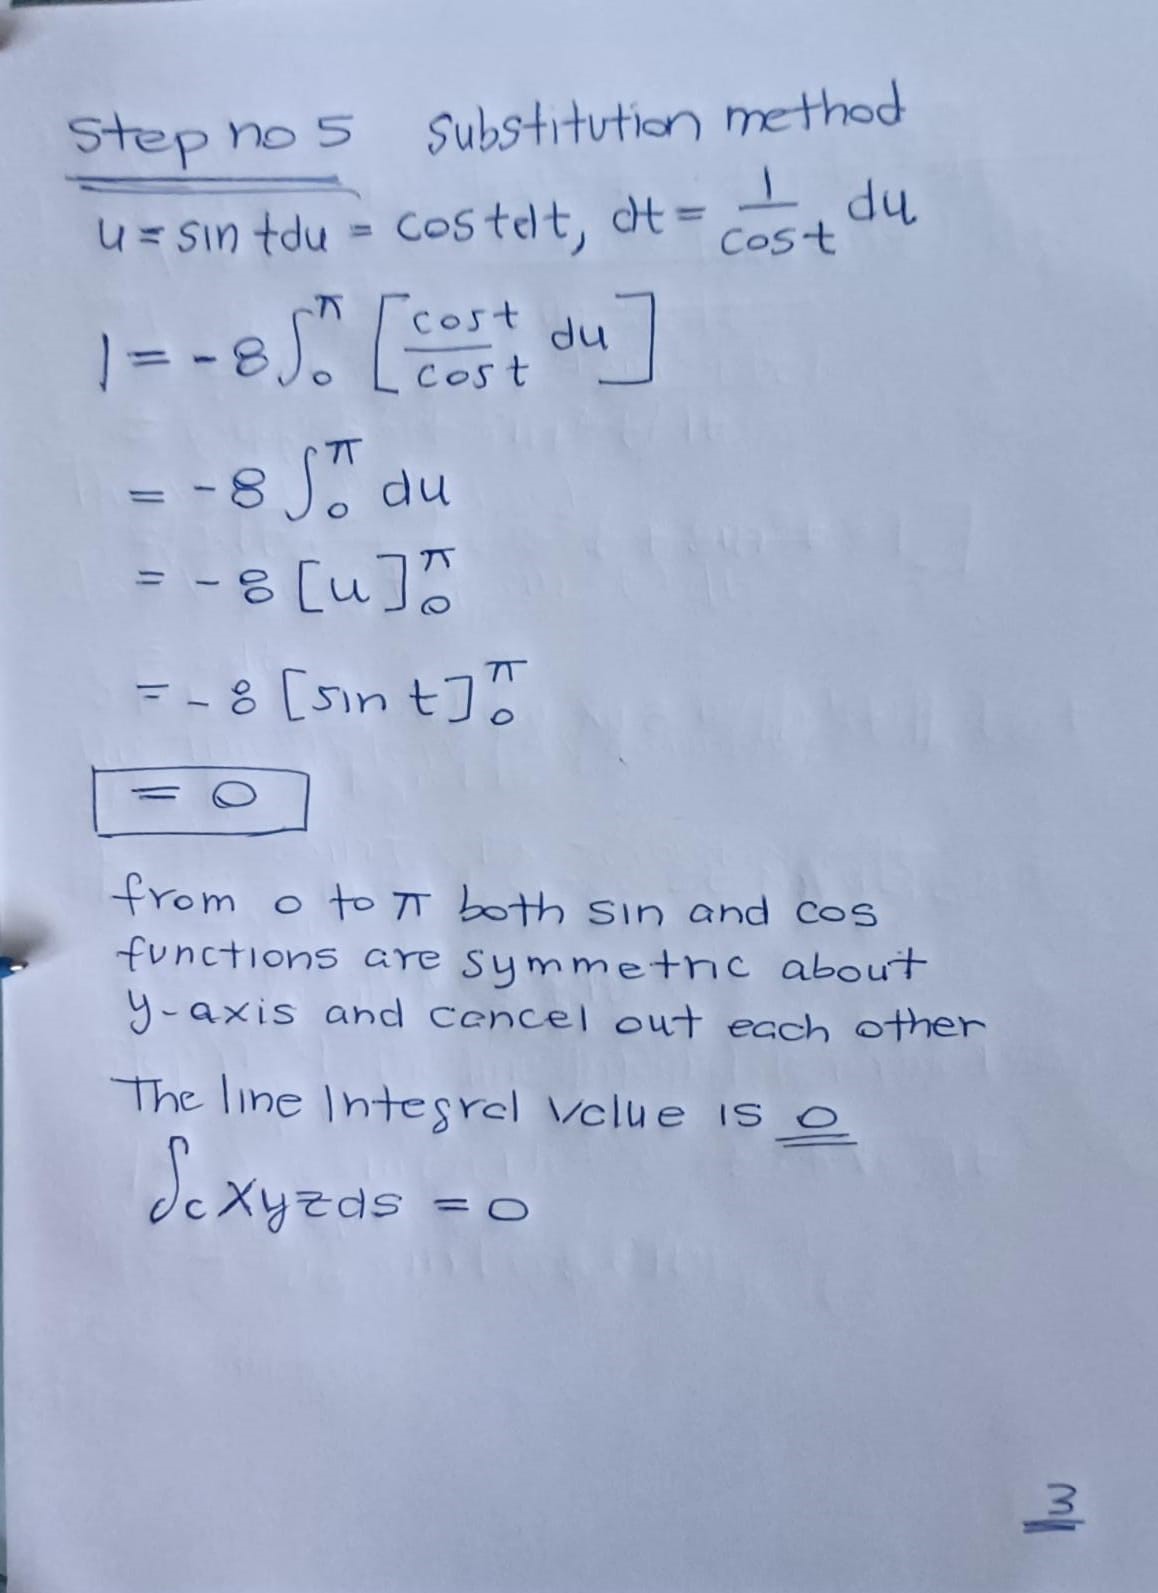 Step no 5 Substitution method
u = sin t du = cos t dt, dt = 1/cos t du
I = -8 ∫₀^π [cos t/cos t du]
= -8 ∫₀^π du
= -8 [u]₀^π
= -8 [sin t]₀^π
= 0
from 0 to π both sin and cos
functions are symmetric about
y-axis and cancel out each other
The line Integral value is 0
∫c xyz ds = 0
3